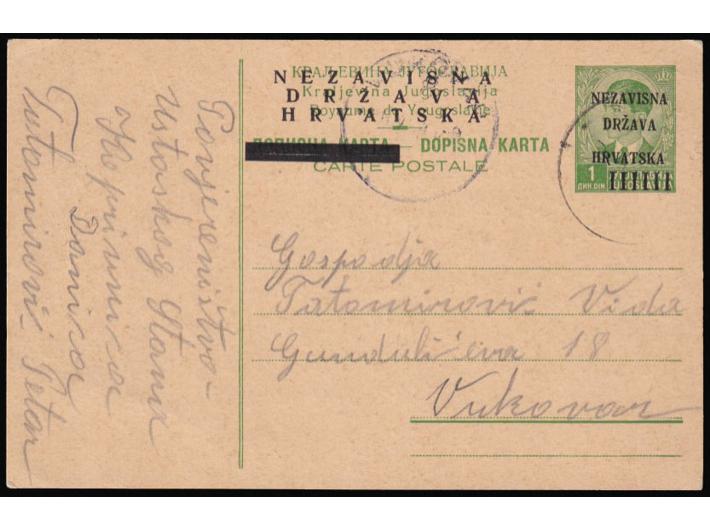 Povjereništvo-
Ustaškog Stana
Koprivnica
Danica
Tatomirović Petar
КРАЉЕВИНА ЈУГОСЛАВИЈА
NEZAVISNA
Kraljevina Jugoslavija
DRŽAVA
Royaume de Yougoslavie
HRVATSKA
ДОПИСНА КАРТА — DOPISNA KARTA
CARTE POSTALE
NEZAVISNA
DRŽAVA
HRVATSKA
1
ДИН DIN
Gospodja
Tatomirović Vida
Gundulićeva 18
Vukovar